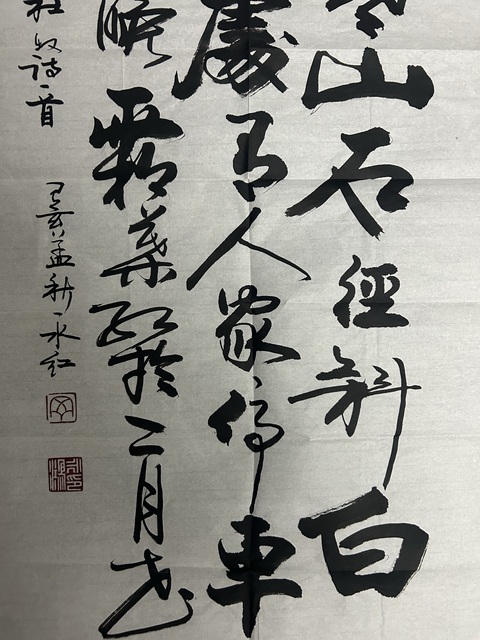 山石徑斜白
處有人家停車
晚霜葉紅於二月花
杜牧詩一首
己亥孟秋永红